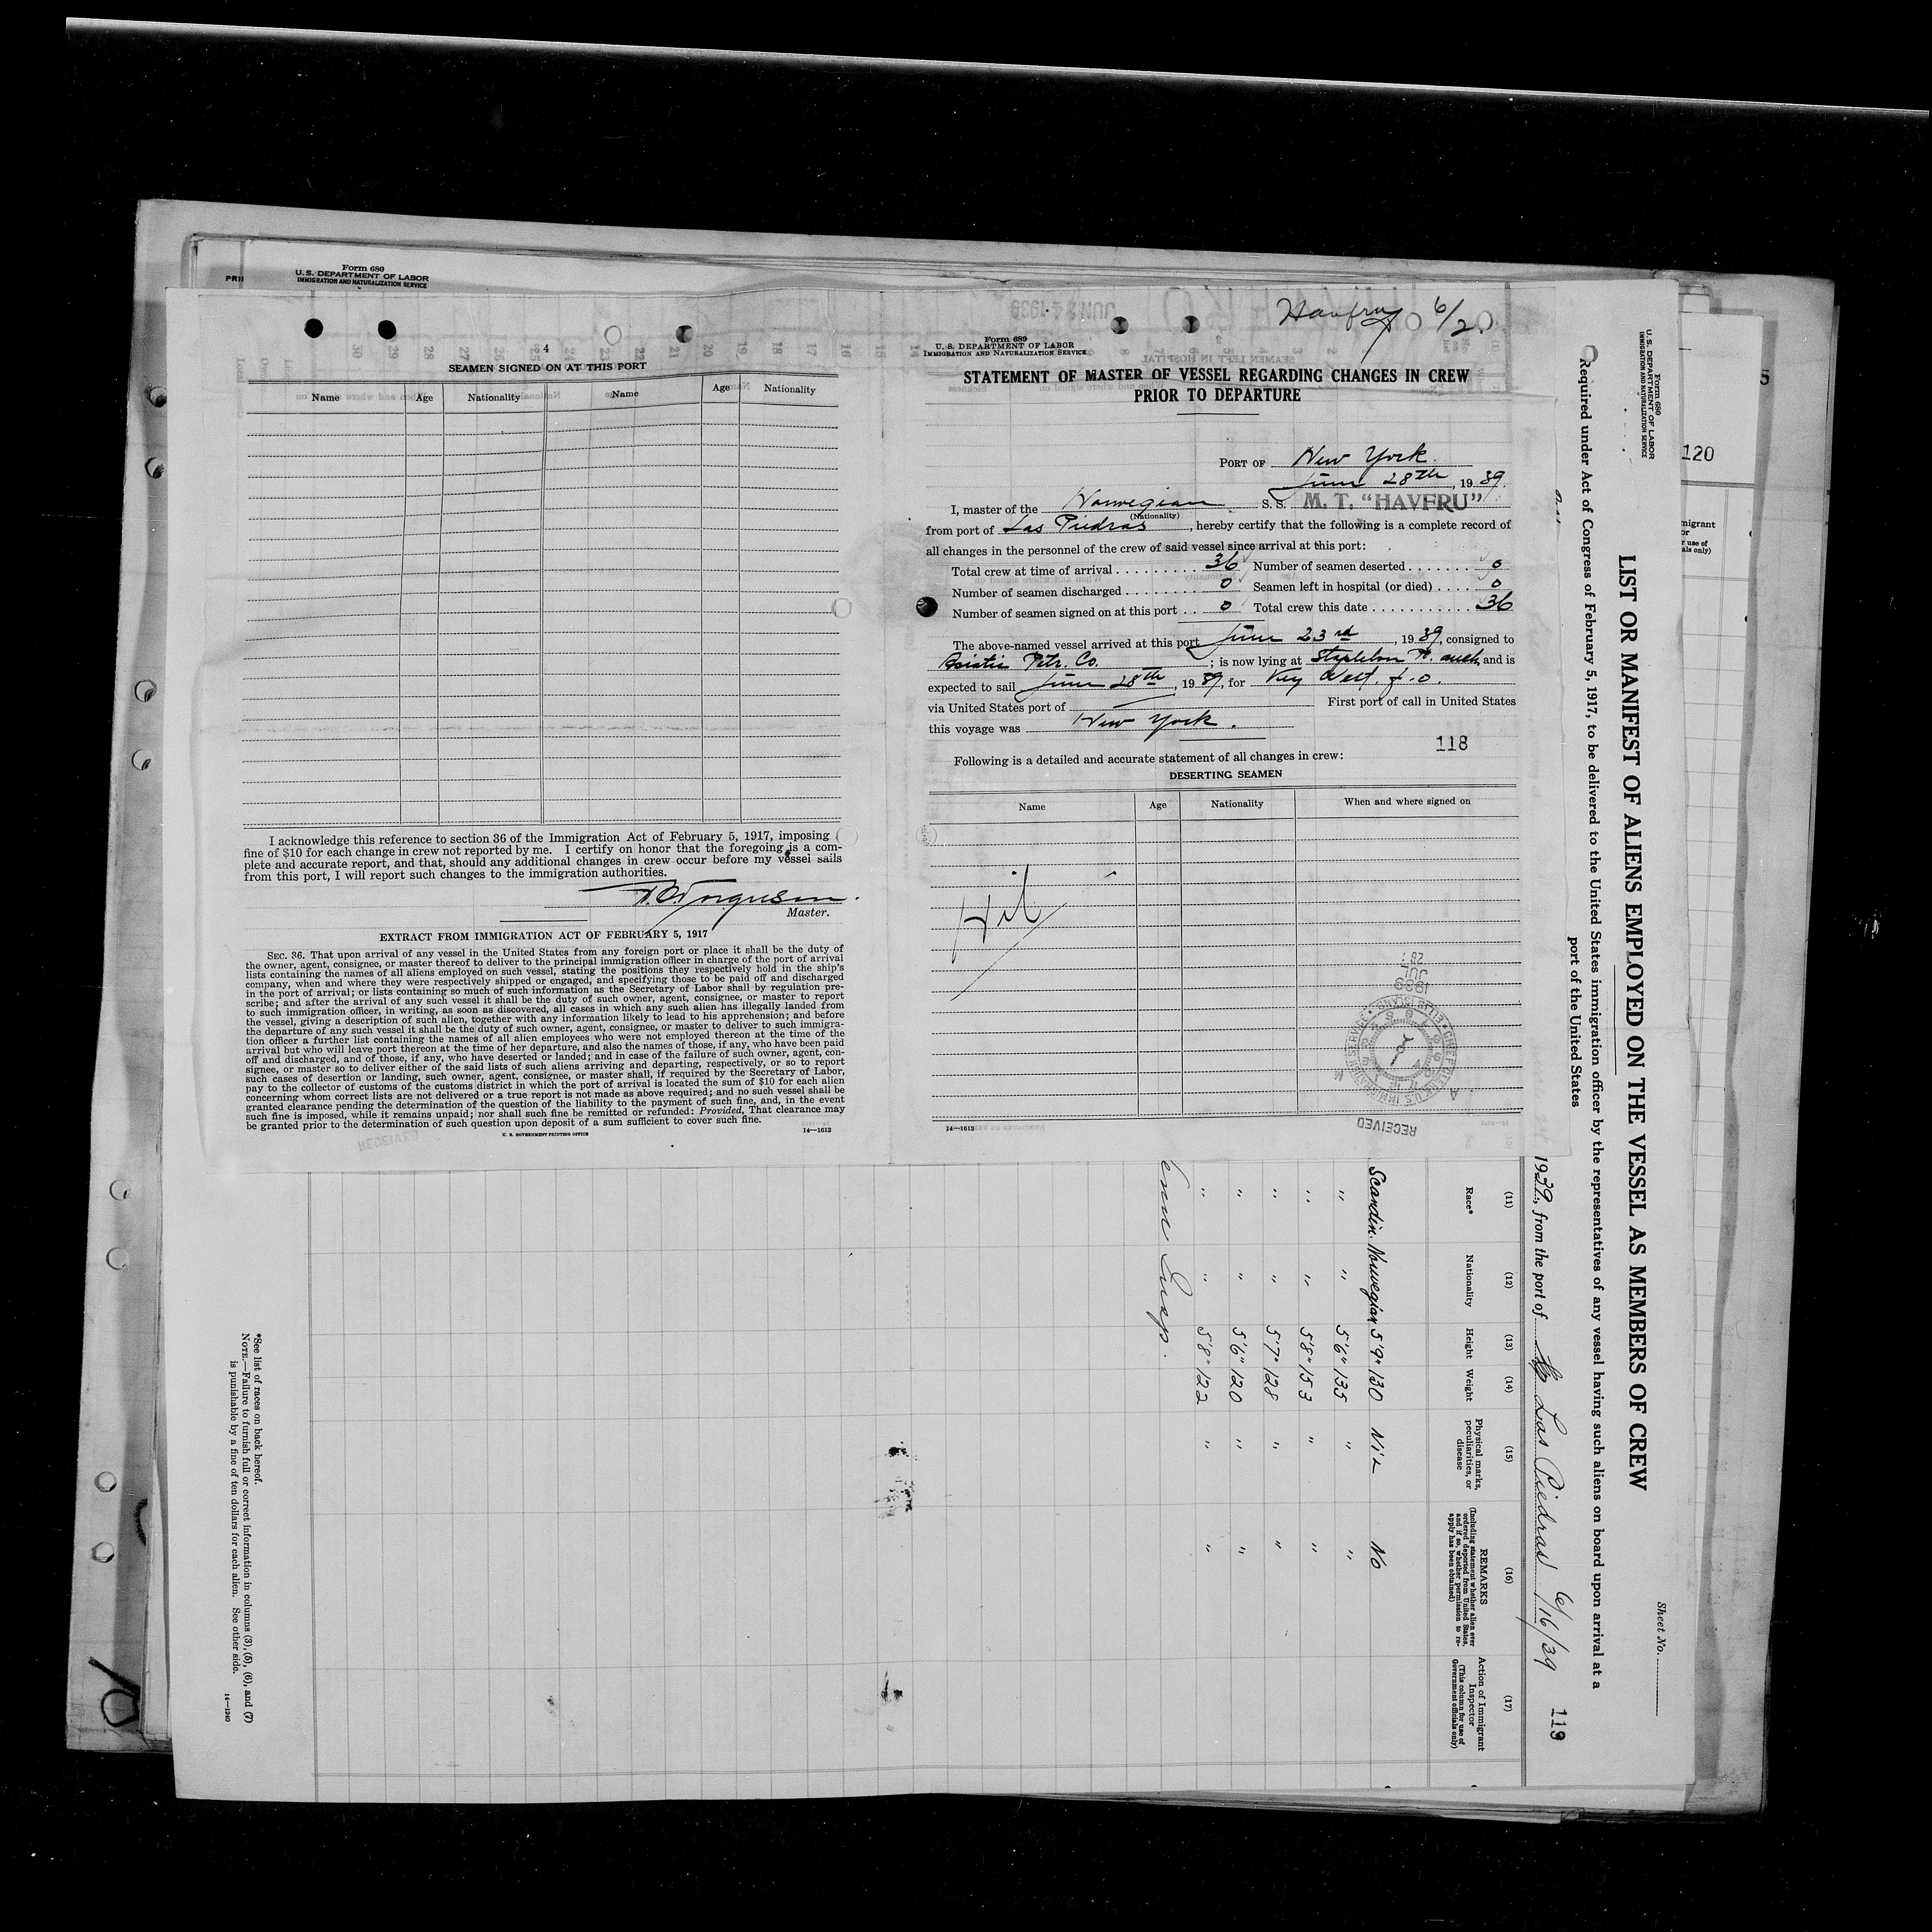 Form 680
U. S. DEPARTMENT OF LABOR
IMMIGRATION AND NATURALIZATION SERVICE
PRI
4
SEAMEN SIGNED ON AT THIS PORT
Name Age Nationality Name Age Nationality
I acknowledge this reference to section 36 of the Immigration Act of February 5, 1917, imposing
fine of $10 for each change in crew not reported by me. I certify on honor that the foregoing is a com-
plete and accurate report, and that, should any additional changes in crew occur before my vessel sails
from this port, I will report such changes to the immigration authorities.
Master.
EXTRACT FROM IMMIGRATION ACT OF FEBRUARY 5, 1917
SEC. 36. That upon arrival of any vessel in the United States from any foreign port or place it shall be the duty of
the owner, agent, consignee, or master thereof to deliver to the principal immigration officer in charge of the port of arrival
lists containing the names of all aliens employed on such vessel, stating the positions they respectively hold in the ship's
company, when and where they were respectively shipped or engaged, and specifying those to be paid off and discharged
in the port of arrival; or lists containing so much of such information as the Secretary of Labor shall by regulation pre-
scribe; and after the arrival of any such vessel it shall be the duty of such owner, agent, consignee, or master to report
to such immigration officer, in writing, as soon as discovered, all cases in which any such alien has illegally landed from
the vessel, giving a description of such alien, together with any information likely to lead to his apprehension; and before
the departure of any such vessel it shall be the duty of such owner, agent, consignee, or master to deliver to such immigra-
tion officer a further list containing the names of all alien employees who were not employed thereon at the time of the
arrival but who will leave port thereon at the time of her departure, and also the names of those, if any, who have been paid
off and discharged, and of those, if any, who have deserted or landed; and in case of the failure of such owner, agent, con-
signee, or master so to deliver either of the said lists of such aliens arriving and departing, respectively, or so to report
such cases of desertion or landing, such owner, agent, consignee, or master shall, if required by the Secretary of Labor,
pay to the collector of customs of the customs district in which the port of arrival is located the sum of $10 for each alien
concerning whom correct lists are not delivered or a true report is not made as above required; and no such vessel shall be
granted clearance pending the determination of the question of the liability to the payment of such fine, and, in the event
such fine is imposed, while it remains unpaid; nor shall such fine be remitted or refunded: Provided, That clearance may
be granted prior to the determination of such question upon deposit of a sum sufficient to cover such fine.
U. S. GOVERNMENT PRINTING OFFICE 14—1613
Havfru 6/2
Form 689
U. S. DEPARTMENT OF LABOR
IMMIGRATION AND NATURALIZATION SERVICE
STATEMENT OF MASTER OF VESSEL REGARDING CHANGES IN CREW
PRIOR TO DEPARTURE
PORT OF New York
June 28th, 1939.
I, master of the Norwegian S. S. M. T. "HAVFRU"
(Nationality)
from port of Las Piedras, hereby certify that the following is a complete record of
all changes in the personnel of the crew of said vessel since arrival at this port:
Total crew at time of arrival 36 Number of seamen deserted 0
Number of seamen discharged 0 Seamen left in hospital (or died) 0
Number of seamen signed on at this port 0 Total crew this date 36
The above-named vessel arrived at this port June 23rd, 1939, consigned to
Asiatic Petr. Co. ; is now lying at Stapleton anch, and is
expected to sail June 28th, 1939, for Key West f.o.
via United States port of — First port of call in United States
this voyage was New York.
118
Following is a detailed and accurate statement of all changes in crew:
DESERTING SEAMEN
Name Age Nationality When and where signed on
Nil
28
JUL
1939
RECEIVED
14—1613
Form 680
U. S. DEPARTMENT OF LABOR
IMMIGRATION AND NATURALIZATION SERVICE
Sheet No.
LIST OR MANIFEST OF ALIENS EMPLOYED ON THE VESSEL AS MEMBERS OF CREW
Required under Act of Congress of February 5, 1917, to be delivered to the United States immigration officer by the representatives of any vessel having such aliens on board upon arrival at a
port of the United States
1939, from the port of Las Piedras 6/16/39
119
(11) (12) (13) (14) (15) (16) (17)
Race* Nationality Height Weight Physical marks, peculiarities, or disease REMARKS (Including statement whether alien ever ordered deported from United States, and if so, whether permission to re-apply has been obtained) Action of Immigrant Inspector (This column for use of Government officials only)
Scandin. Norwegian 5'9" 130 NIL No
" " 5'6" 135 " "
" " 5'8" 153 " "
" " 5'7" 128 " "
" " 5'6" 120 " "
" " 5'8" 122 " "
Insp.
*See list of races on back hereof.
NOTE.—Failure to furnish full or correct information in columns (3), (5), (6), and (7)
is punishable by a fine of ten dollars for each alien. See other side.
14—1240
120
5